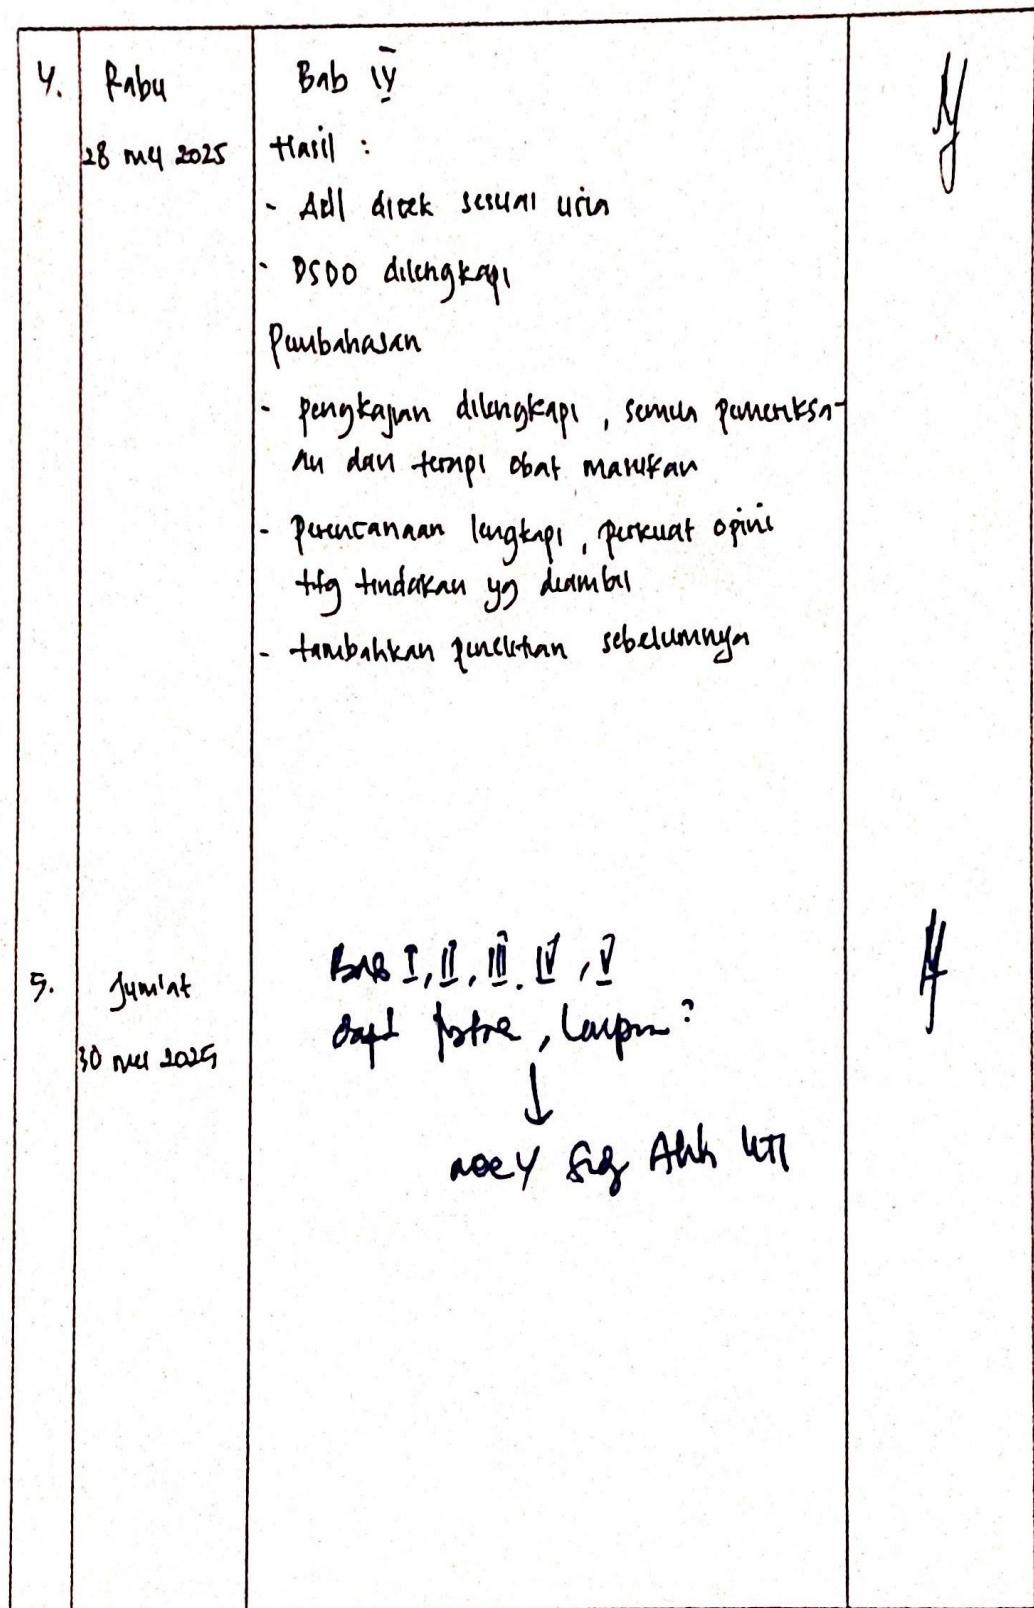 4.
Rabu
28 mei 2025
Bab IV
Hasil :
- dicek sesuai usia
- DSDO dilengkapi
Pembahasan
- pengkajian dilengkapi, semua pemeriksa-
an dan terapi obat masukan
- perencanaan lengkapi, perkuat opini
ttg tindakan yg diambil
- tambahkan penelitian sebelumnya
5.
Jum'at
30 mei 2025
BAB I, II, III. IV, V
↓
KTI